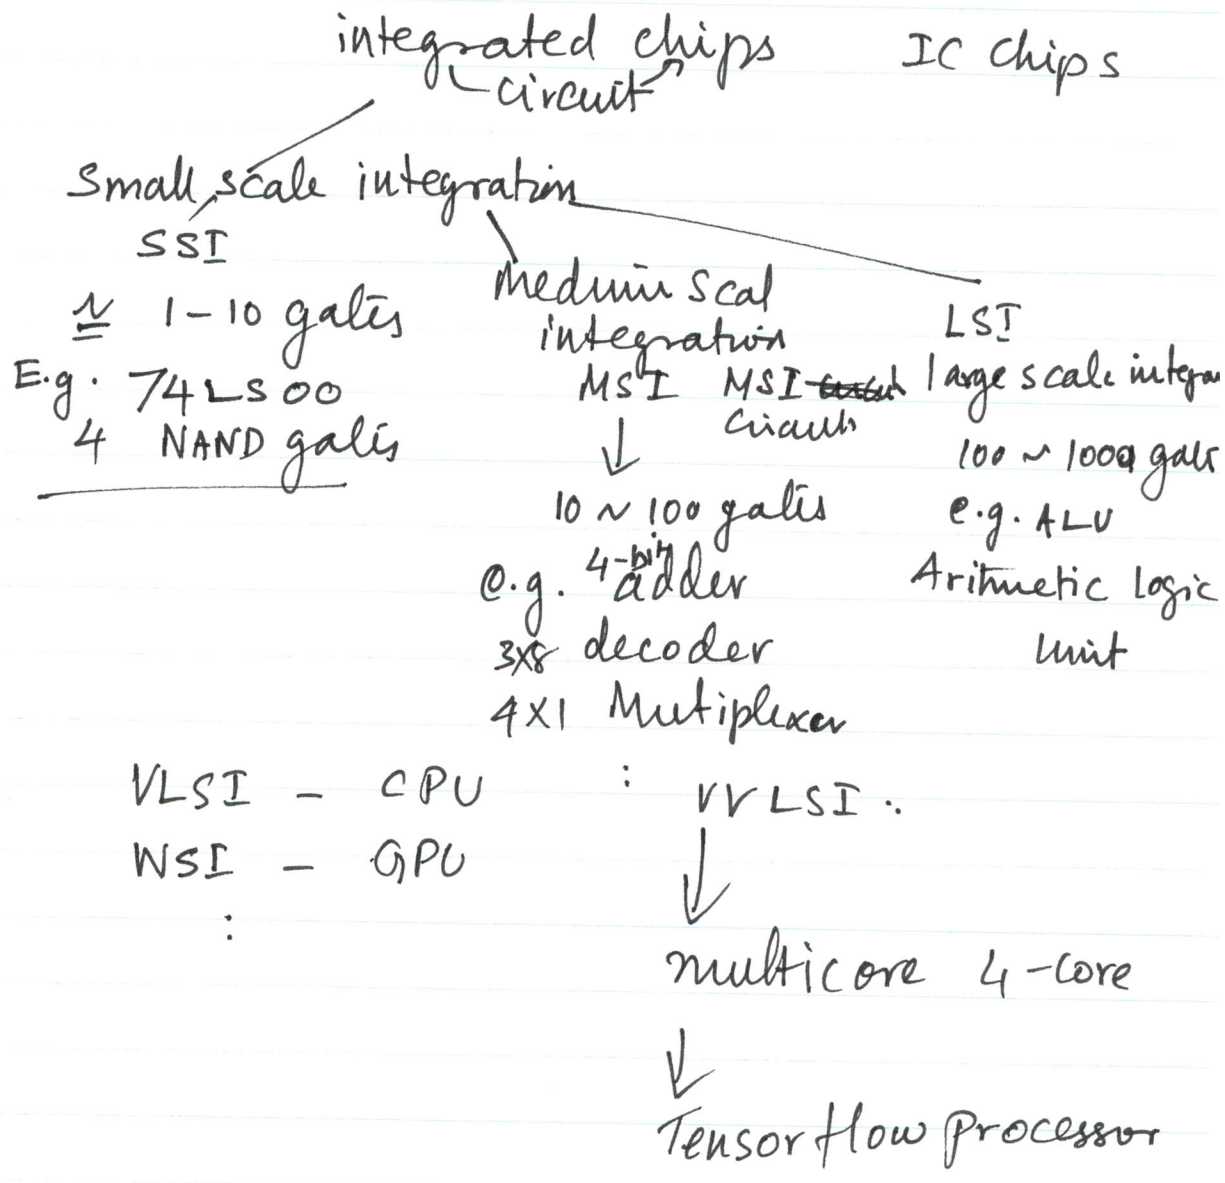 integrated chips
circuit
IC Chips
Small scale integration
SSI
≈ 1-10 gates
E.g. 74LS00
4 NAND gates
Medium scal
integration
MSI MSI
circuits
10 ~ 100 gates
e.g. 4-bit adder
3x8 decoder
4x1 Mutiplexer
:
LSI
large scale integra
100 ~ 1000 gate
e.g. ALU
Aritmetic logic
Unit
VLSI - CPU
WSI - GPU
:
VVLSI ..
multicore 4-core
Tensorflow Processor